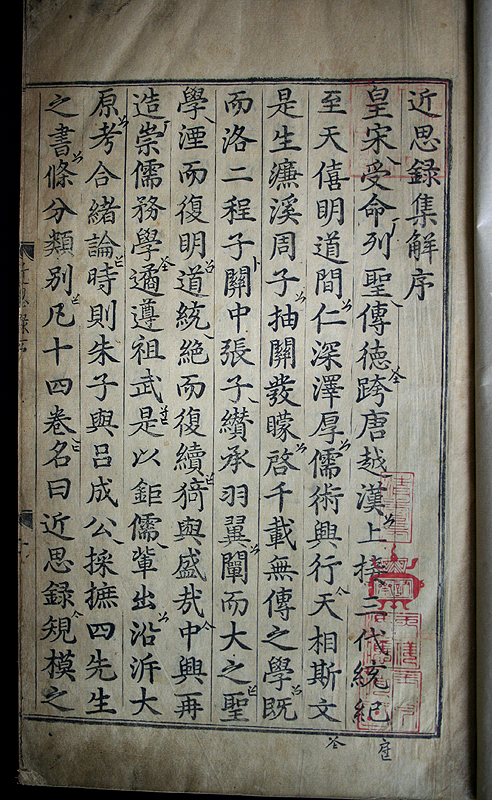 近思錄集解序
皇宋受命列聖傳德跨唐越漢上接三代統紀
至天僖明道間仁深澤厚儒術興行天相斯文
是生濂溪周子抽關發矇啓千載無傳之學既
而洛二程子關中張子纘承羽翼闡而大之聖
學湮而復明道統絶而復續猗與盛哉中興再
造崇儒務學遹遵祖武是以鉅儒輩出沿泝大
原考合緖論時則朱子與呂成公採摭四先生
之書條分類別凡十四卷名曰近思錄規模之